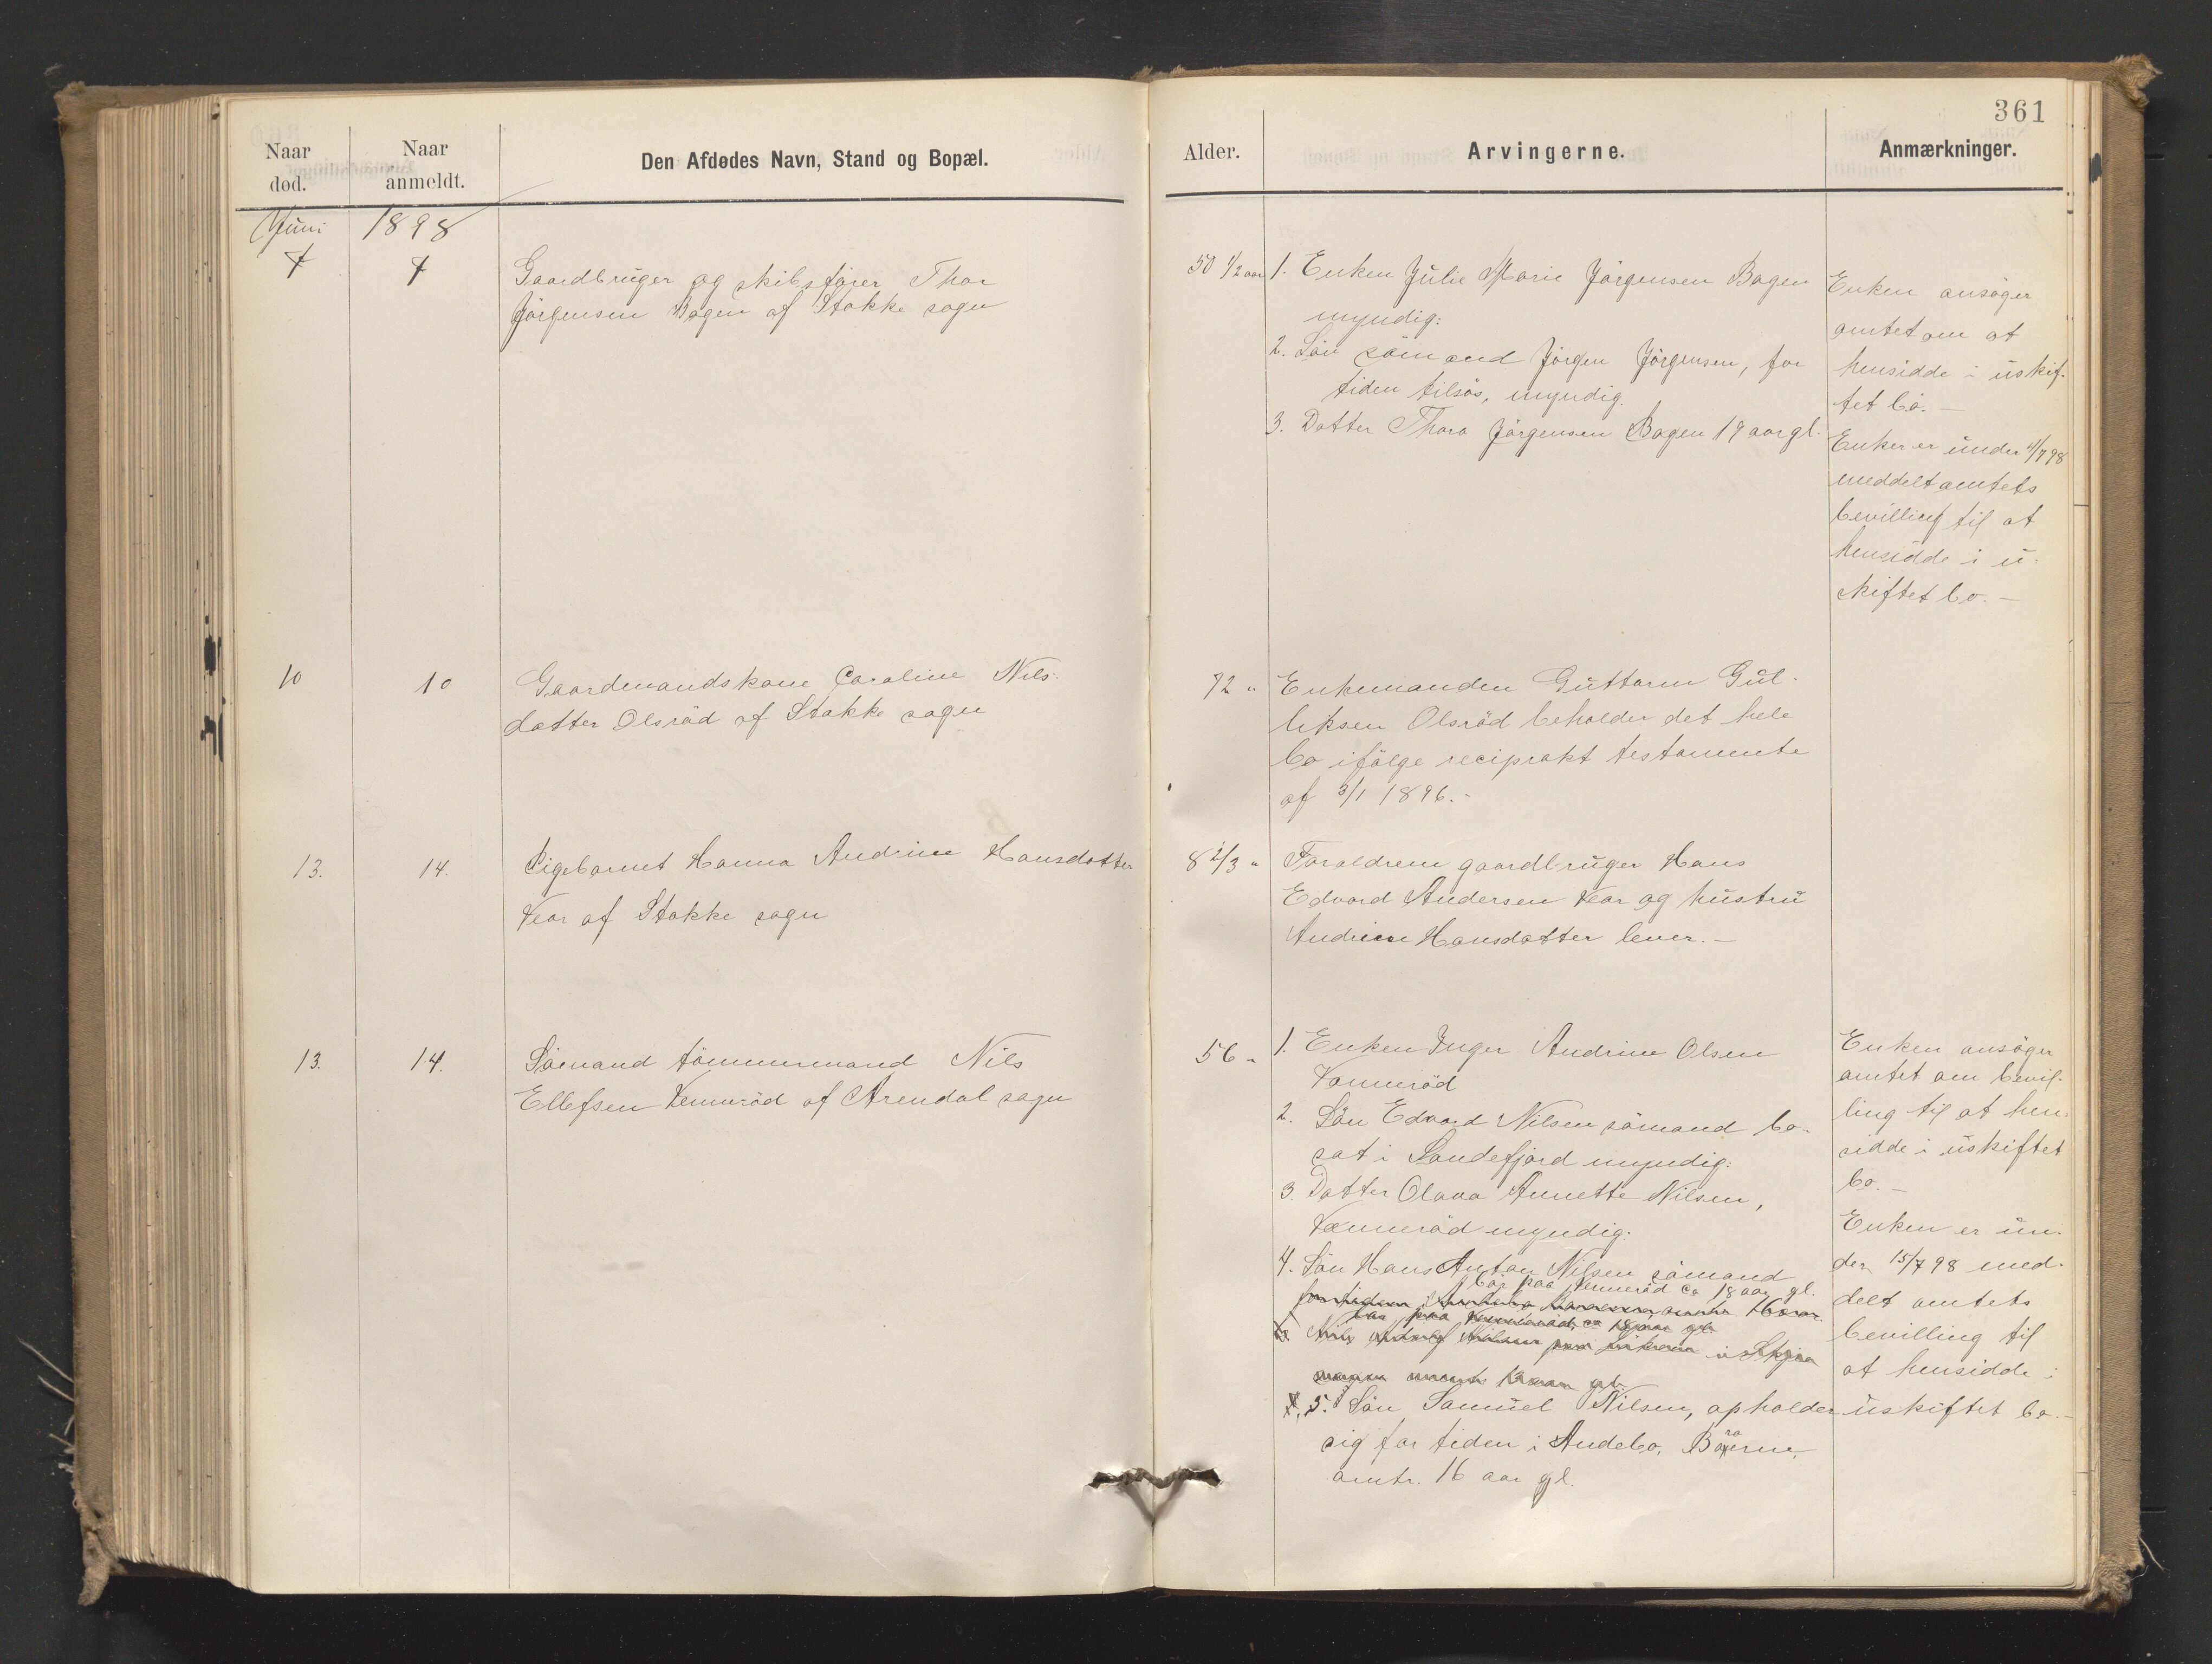 361
Naar død.
Naar anmeldt.
Den Afdødes Navn, Stand og Bopæl.
Alder.
Arvingerne.
Anmærkninger.
Juni 1898
7
7
Gaardbruger og skibsfører Thor
Jörgensen Bogen af Stokke sogn
50 1/2 aar
1. Enken Julie Marie Jörgensen Bogen
myndig:
2. Sön sömand Jörgen Jörgensen, for
tiden tilsös, myndig.
3. Datter Thora Jörgensen Bogen 19 aar gl.
Enken ansöger
amtet om at
hensidde i uskif-
tet bo. —
Enken er under 4/7 98
meddelt amtets
bevilling til at
hensidde i u-
skiftet bo. —
10
10
Gaardmandskone Caroline Nils-
datter Olsröd af Stokke sogn
72 "
Enkemanden Guttorm Gul-
liksen Olsröd beholder det hele
bo ifölge reciprokt testamente
af 3/1 1896.-
13.
14
Pigebarnet Hanna Andrine Hansdatter
Kear af Stokke sogn
8 2/3 "
Foraldrene gaardbruger Hans
Edvard Andersen Kear og hustru
Andrine Hansdatter lever. —
13.
14.
Sömand tömmermand Nils
Ellefsen Venneröd af Arendal sogn
56 "
1. Enken Inger Andrine Olsen
Venneröd
2. Sön Edvard Nilsen sömand bo-
sat i Sandefjord myndig:
3. Datter Olava Annette Nilsen,
Venneröd myndig.
4. Sön Hans Anton Nilsen sömand
bor paa Venneröd ca 18 aar gl.
for tiden 16 aar.
bor paa Venneröd, ca 18 aar gl.
Nils Nilsen paa i
gl.
5. Sön Samuel Nilsen, opholder
sig for tiden i Andebo,
omtr. 16 aar gl.
Enken ansöger
amtet om bevil-
ling til at hen-
sidde i uskiftet
bo. —
Enken er un-
der 15/7 98 med-
delt amtets
bevilling til
at hensidde i
uskiftet bo. —